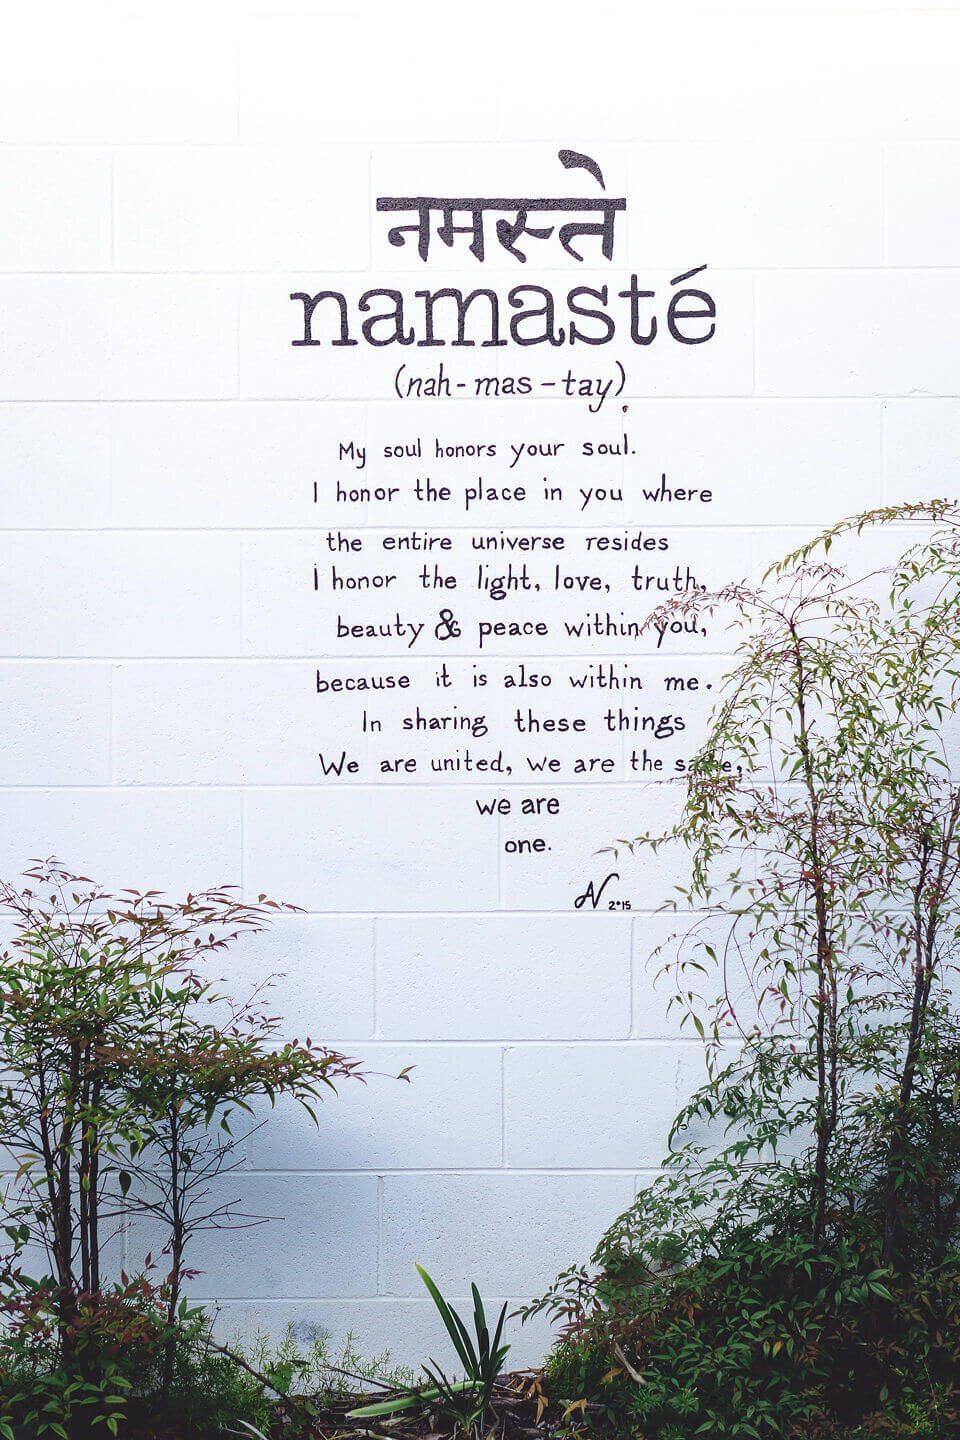 नमस्ते
namasté
(nah-mas-tay)
My soul honors your soul.
I honor the place in you where
the entire universe resides
I honor the light, love, truth,
beauty & peace within you,
because it is also within me.
In sharing these things
We are united, we are the same,
we are
one.
AV 2015